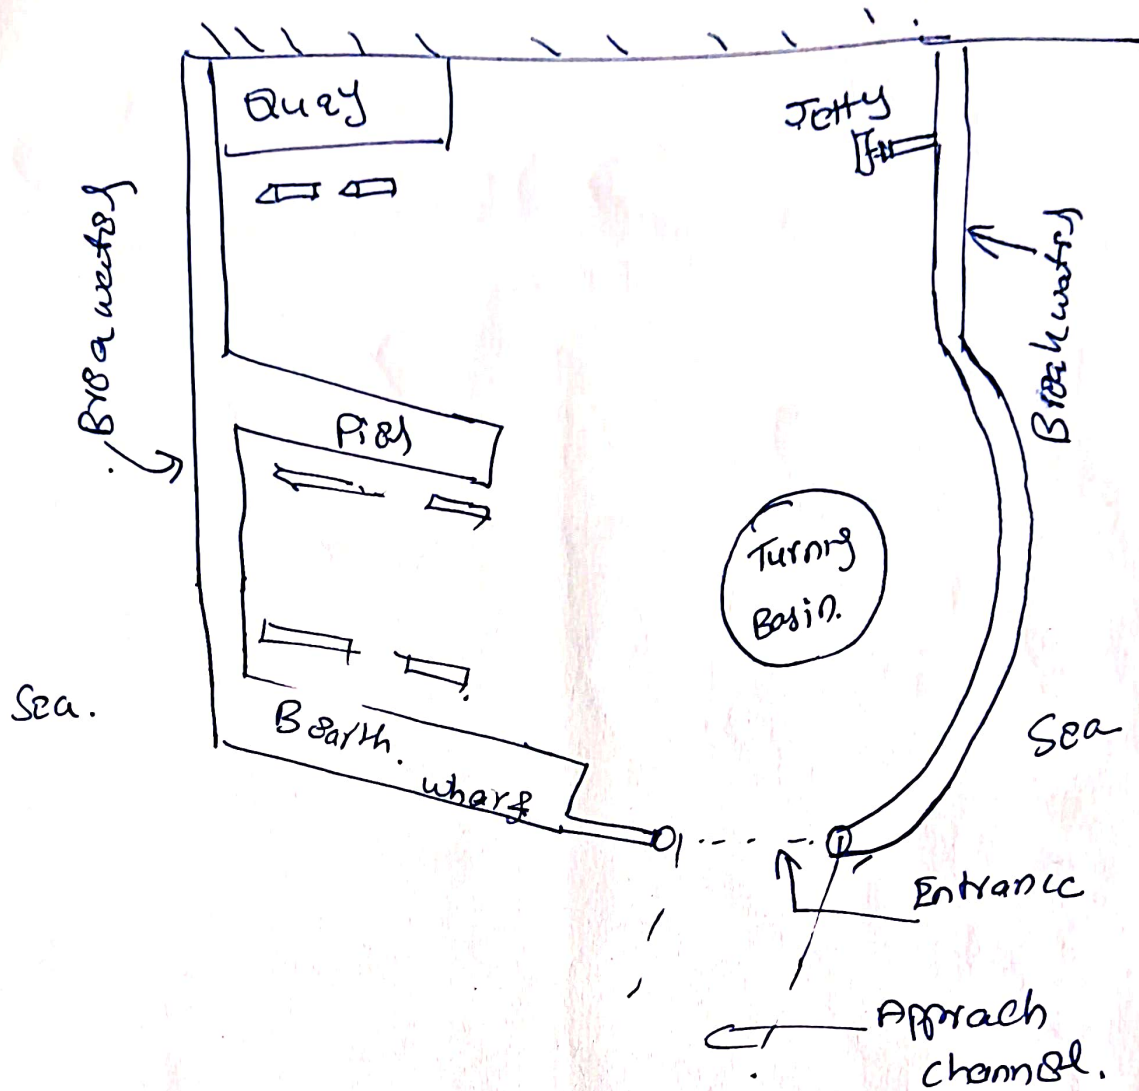 Quay
Jetty
Breawater
Breakwater
Pier
Turnig
Basin.
Sea.
Bearth.
wharf
Sea
Entrance
Apprach
channel.